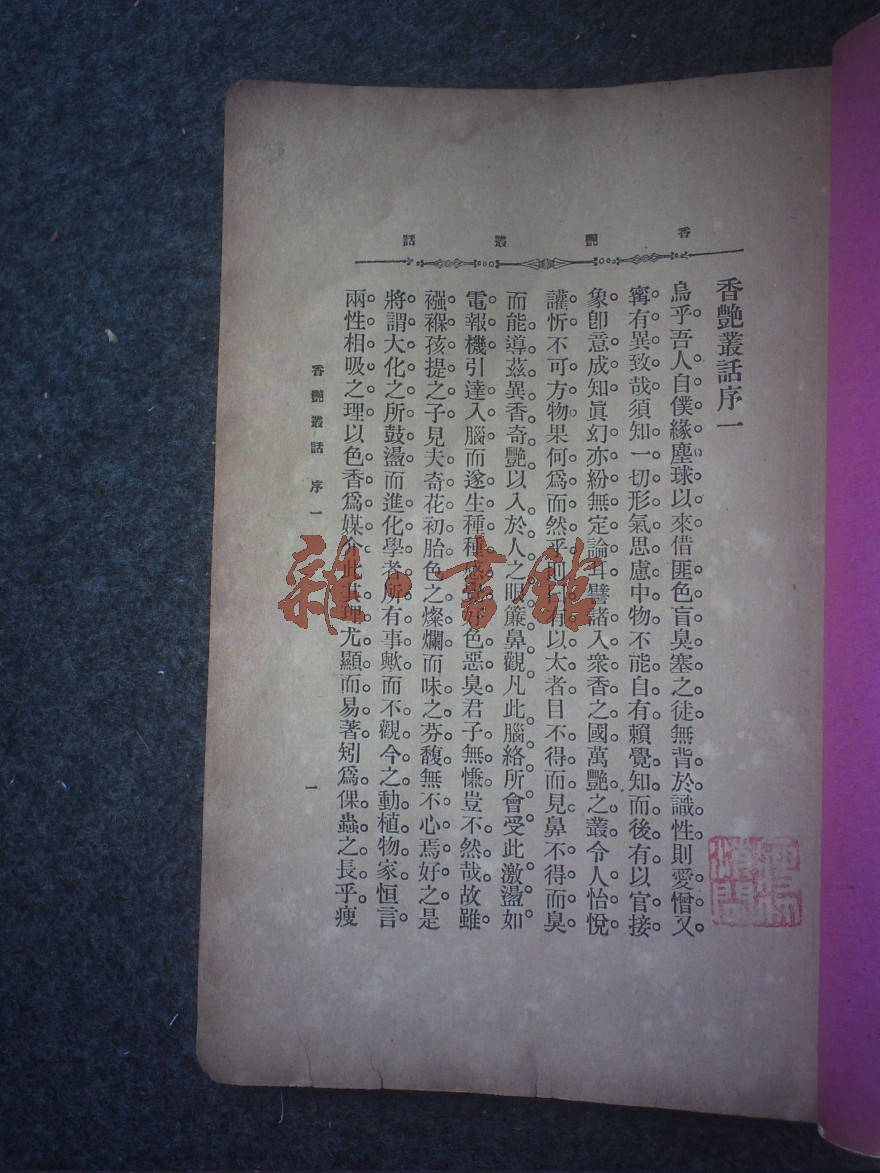 香艷叢話
香艷叢話序一
烏乎吾人自僕緣塵球以來借匪色盲臭塞之徒無背於識性則愛憎又
寗有異致哉須知一切形氣思慮中物不能自有賴覺知而後有以官接
象卽意成知眞幻亦紛無定論耳譬諸入衆香之國萬艷之叢令人怡悅
讙忻不可方物果何爲而然乎則以有以太者目不得而見鼻不得而臭
而能導茲異香奇艷以入於人之眼簾鼻觀凡此腦絡所會受此激盪如
電報機引達入腦而遂生種種感觸好色惡臭君子無慊豈不然哉故雖
襁褓孩提之子見夫奇花初胎色之燦爛而味之芬馥無不心焉好之是
將謂大化之所鼓盪而進化學者所有事歟而不觀今之動植物家恒言
兩性相吸之理以色香爲媒介此其理尤顯而易著矧爲倮蟲之長乎瘦
香艷叢話 序一
一
雜·書館